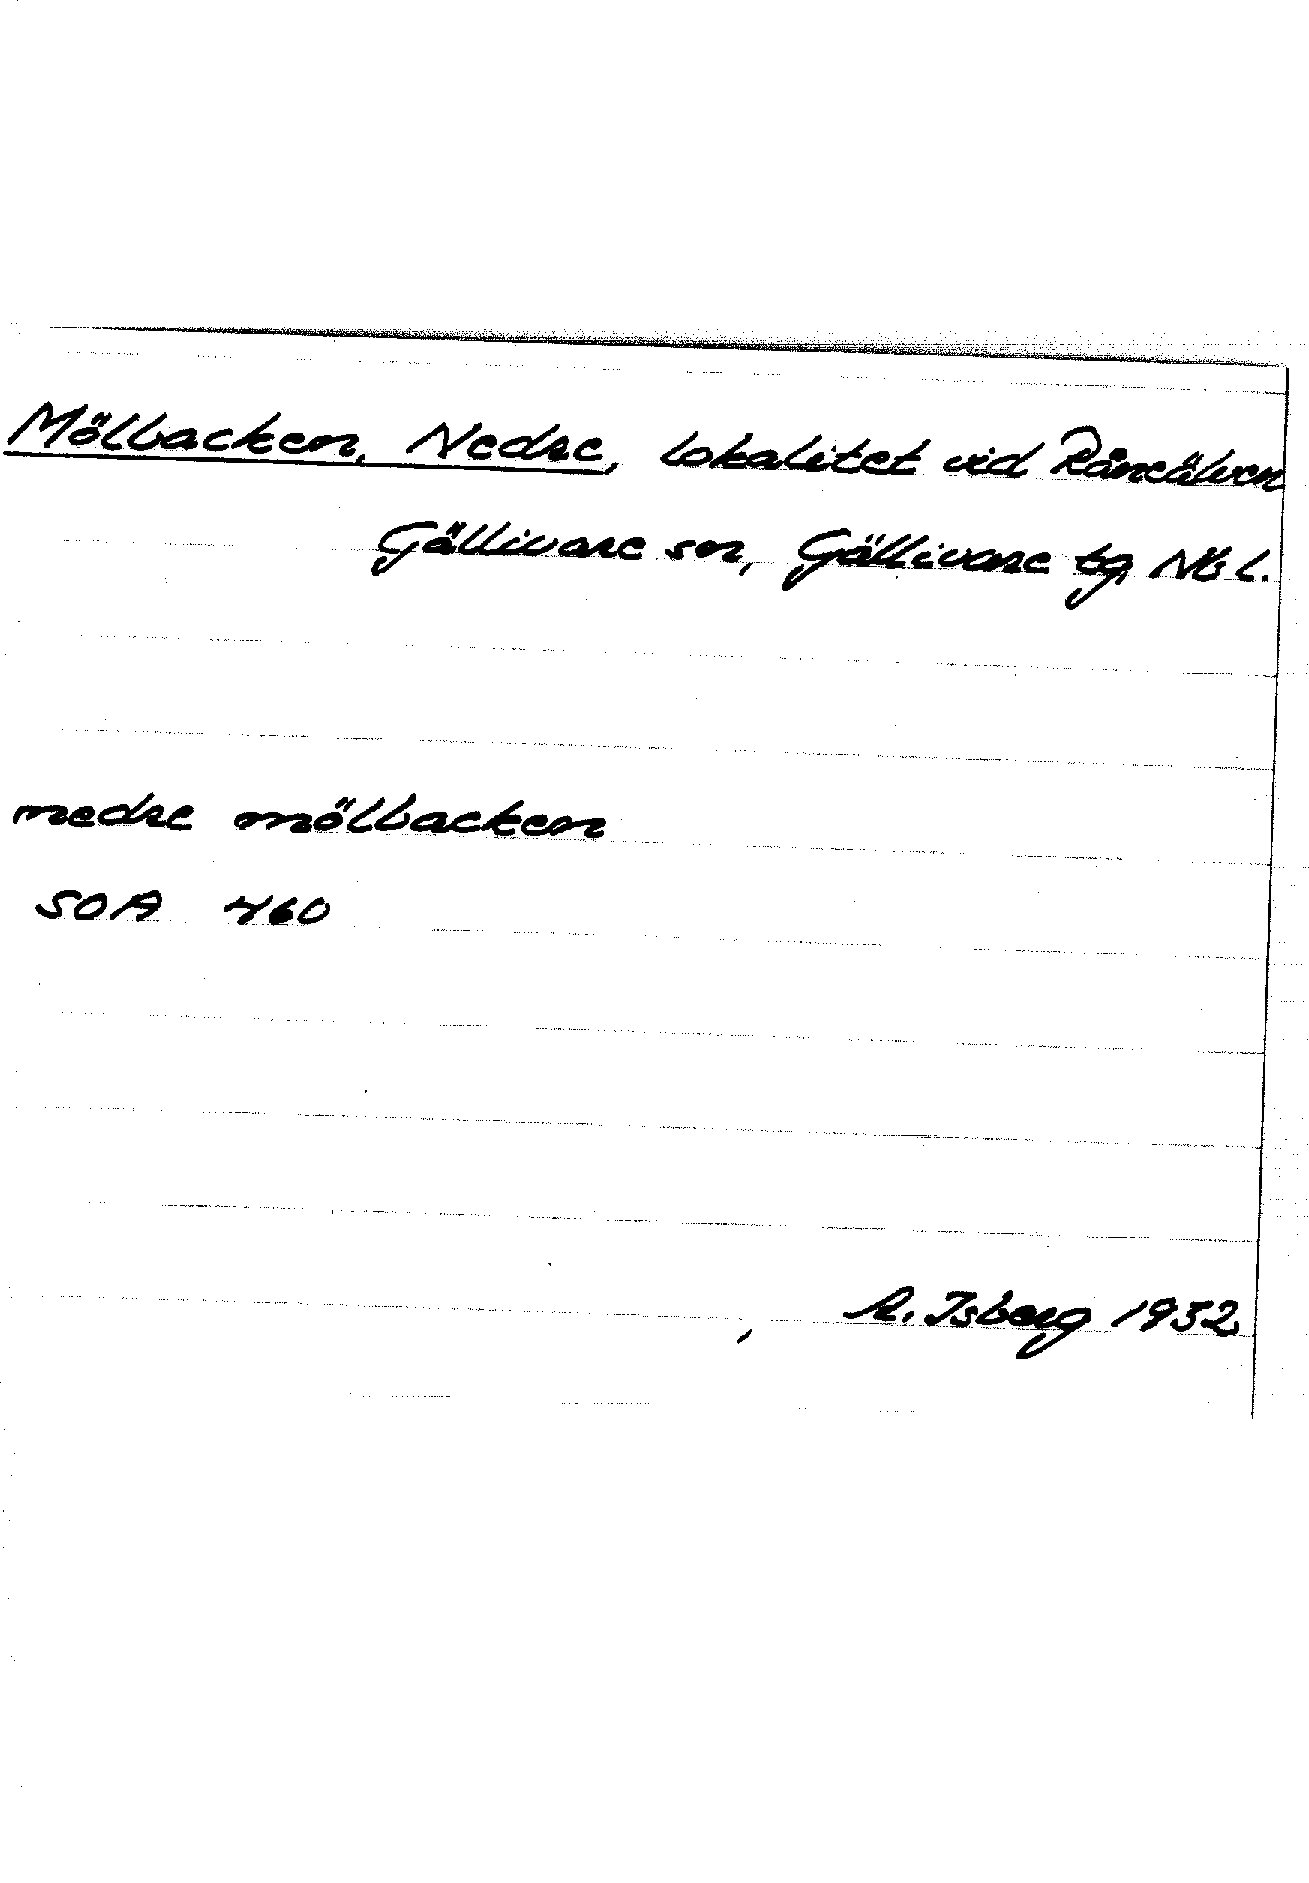 Mölbacken, Nedre, lokalitet vid Råneälven
Gällivare sn, Gällivare tg, Nb l.
nedre mölbacken
SOA 460
A. Isberg 1932